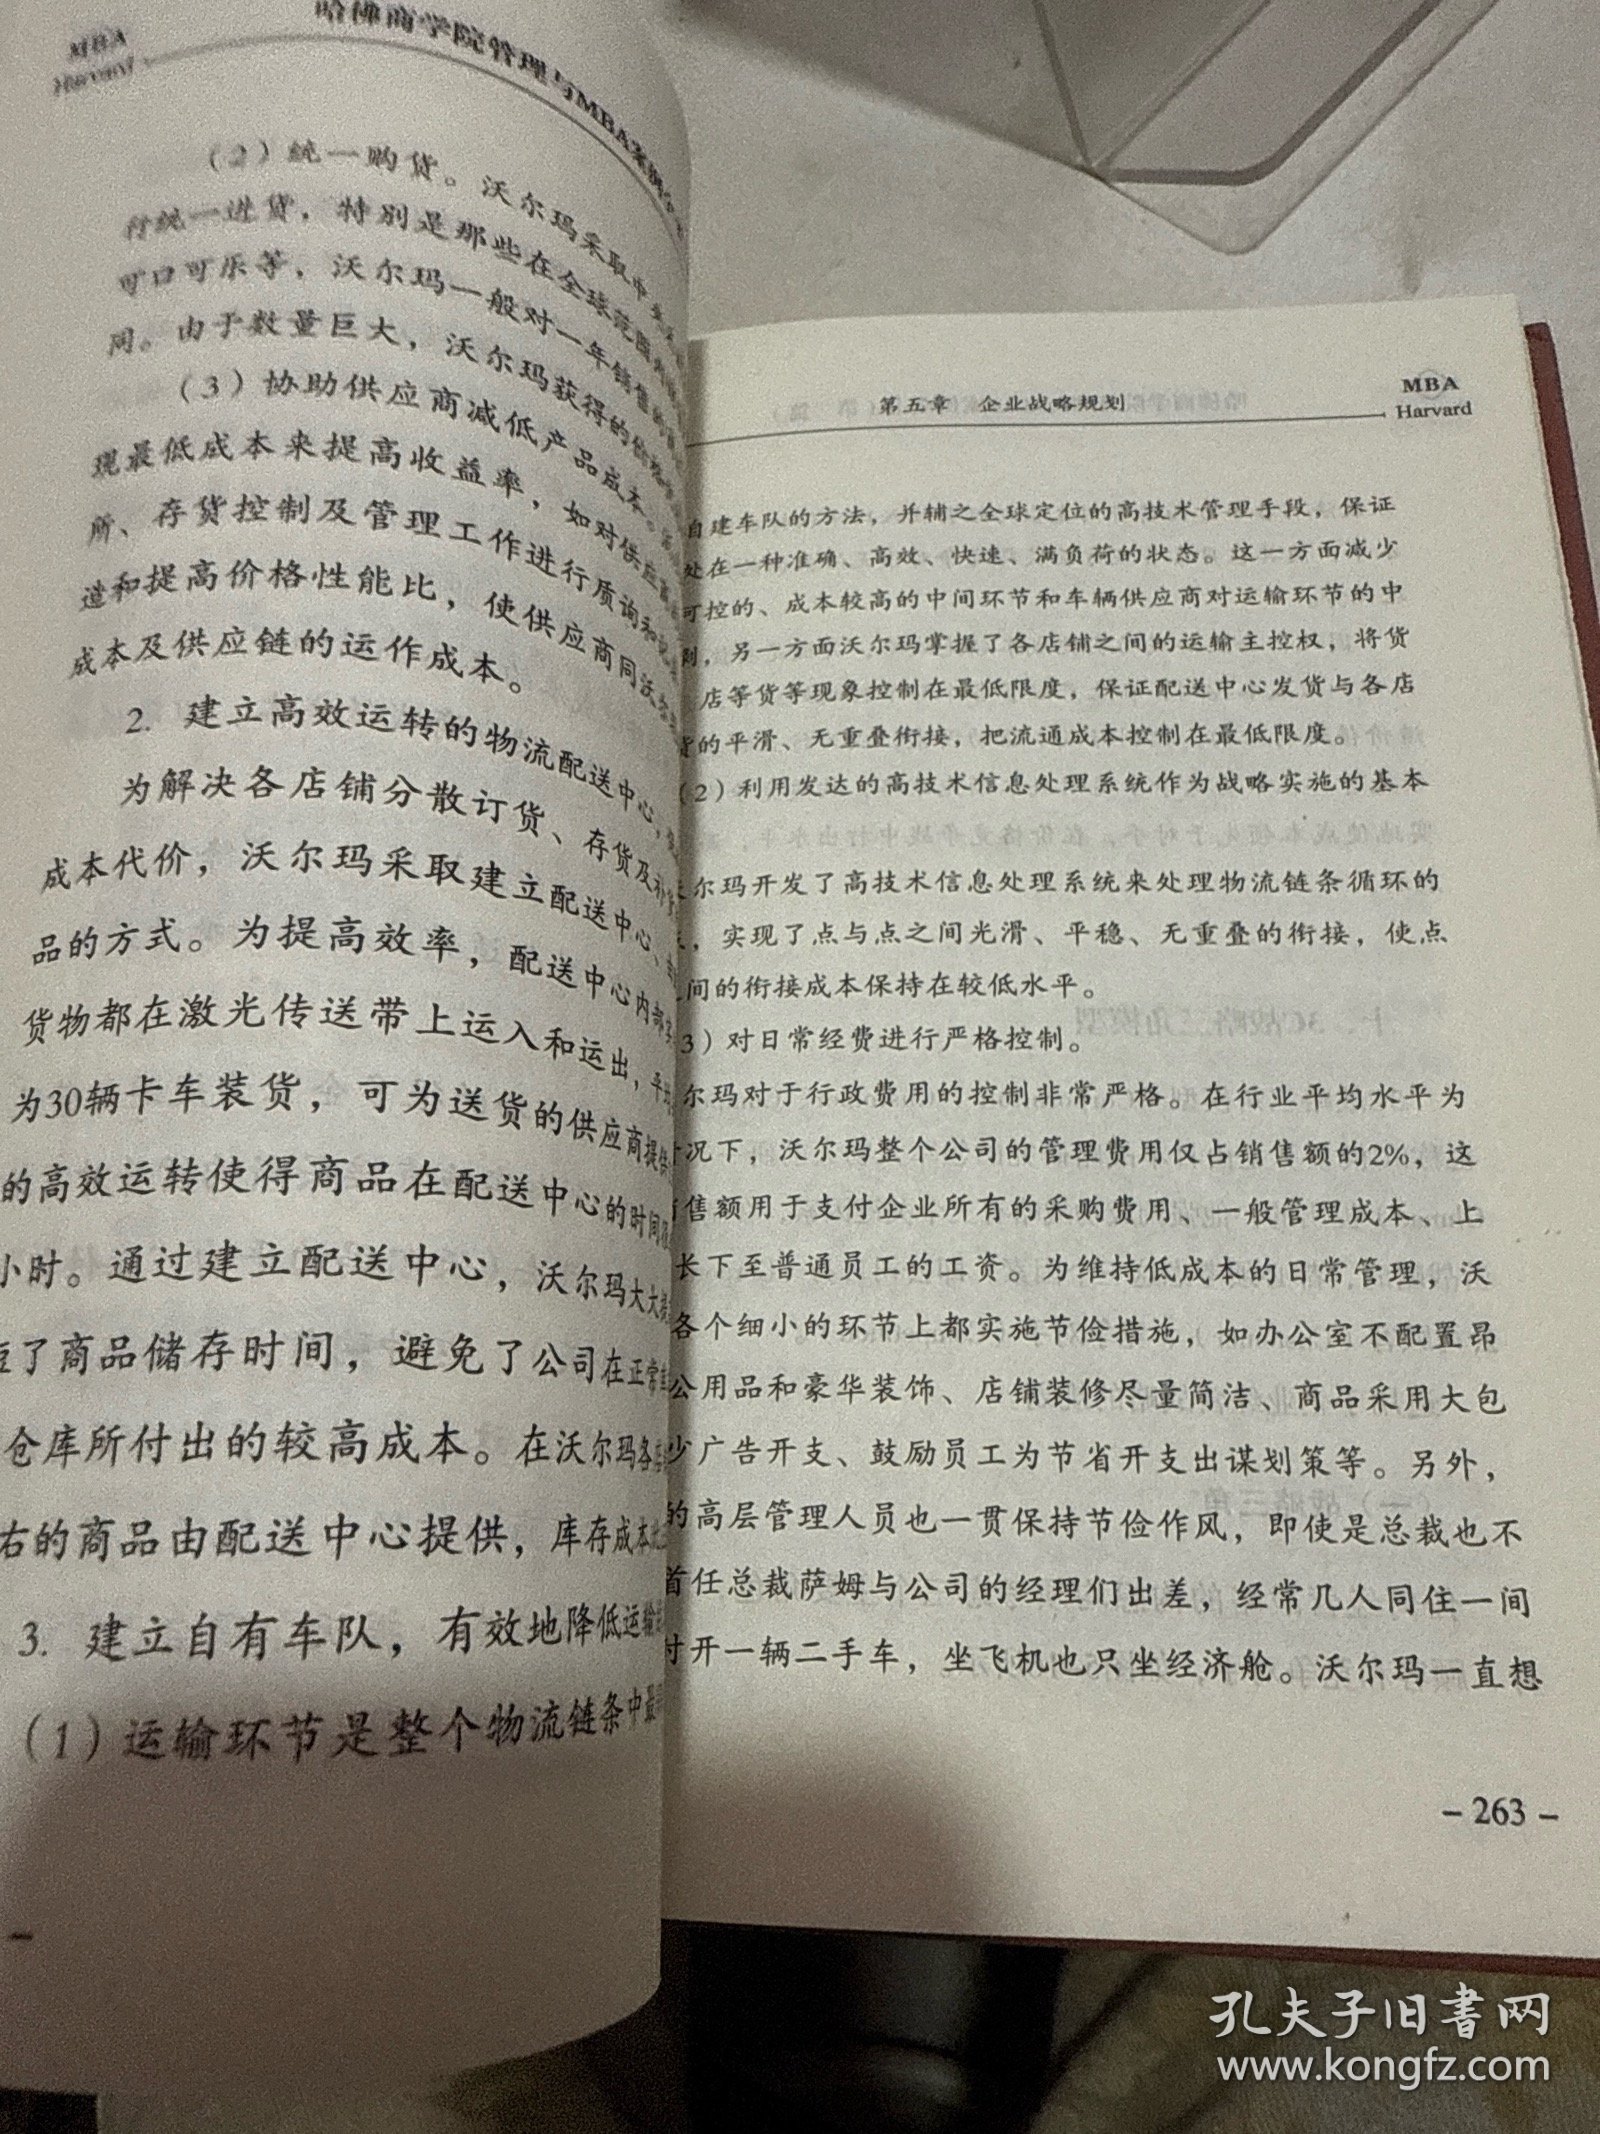 MBA
Harvard
哈佛商学院管理与MBA案例
（2）统一购货。沃尔玛采取中央
行统一进货，特别是那些在全球范围
可口可乐等，沃尔玛一般对一年销售的
同。由于数量巨大，沃尔玛获得的价格
（3）协助供应商减低产品成本。
现最低成本来提高收益率，如对供应商
所、存货控制及管理工作进行质询和
造和提高价格性能比，使供应商同沃尔
成本及供应链的运作成本。
2. 建立高效运转的物流配送中心，
为解决各店铺分散订货、存货及补货
成本代价，沃尔玛采取建立配送中心、
品的方式。为提高效率，配送中心内部实
货物都在激光传送带上运入和运出，平均
为30辆卡车装货，可为送货的供应商提供
的高效运转使得商品在配送中心的时间
小时。通过建立配送中心，沃尔玛大大
短了商品储存时间，避免了公司在正常
仓库所付出的较高成本。在沃尔玛各
右的商品由配送中心提供，库存成本
3. 建立自有车队，有效地降低运输
（1）运输环节是整个物流链条中最
第五章 企业战略规划
MBA
Harvard
自建车队的方法，并辅之全球定位的高技术管理手段，保证
处在一种准确、高效、快速、满负荷的状态。这一方面减少
可控的、成本较高的中间环节和车辆供应商对运输环节的中
，另一方面沃尔玛掌握了各店铺之间的运输主控权，将货
店等货等现象控制在最低限度，保证配送中心发货与各店
货的平滑、无重叠衔接，把流通成本控制在最低限度。
（2）利用发达的高技术信息处理系统作为战略实施的基本
尔玛开发了高技术信息处理系统来处理物流链条循环的
，实现了点与点之间光滑、平稳、无重叠的衔接，使点
间的衔接成本保持在较低水平。
3）对日常经费进行严格控制。
尔玛对于行政费用的控制非常严格。在行业平均水平为
况下，沃尔玛整个公司的管理费用仅占销售额的2%，这
售额用于支付企业所有的采购费用、一般管理成本、上
长下至普通员工的工资。为维持低成本的日常管理，沃
各个细小的环节上都实施节俭措施，如办公室不配置昂
公用品和豪华装饰、店铺装修尽量简洁、商品采用大包
少广告开支、鼓励员工为节省开支出谋划策等。另外，
的高层管理人员也一贯保持节俭作风，即使是总裁也不
首任总裁萨姆与公司的经理们出差，经常几人同住一间
开一辆二手车，坐飞机也只坐经济舱。沃尔玛一直想
– 263 –
孔夫子旧书网
www.kongfz.com